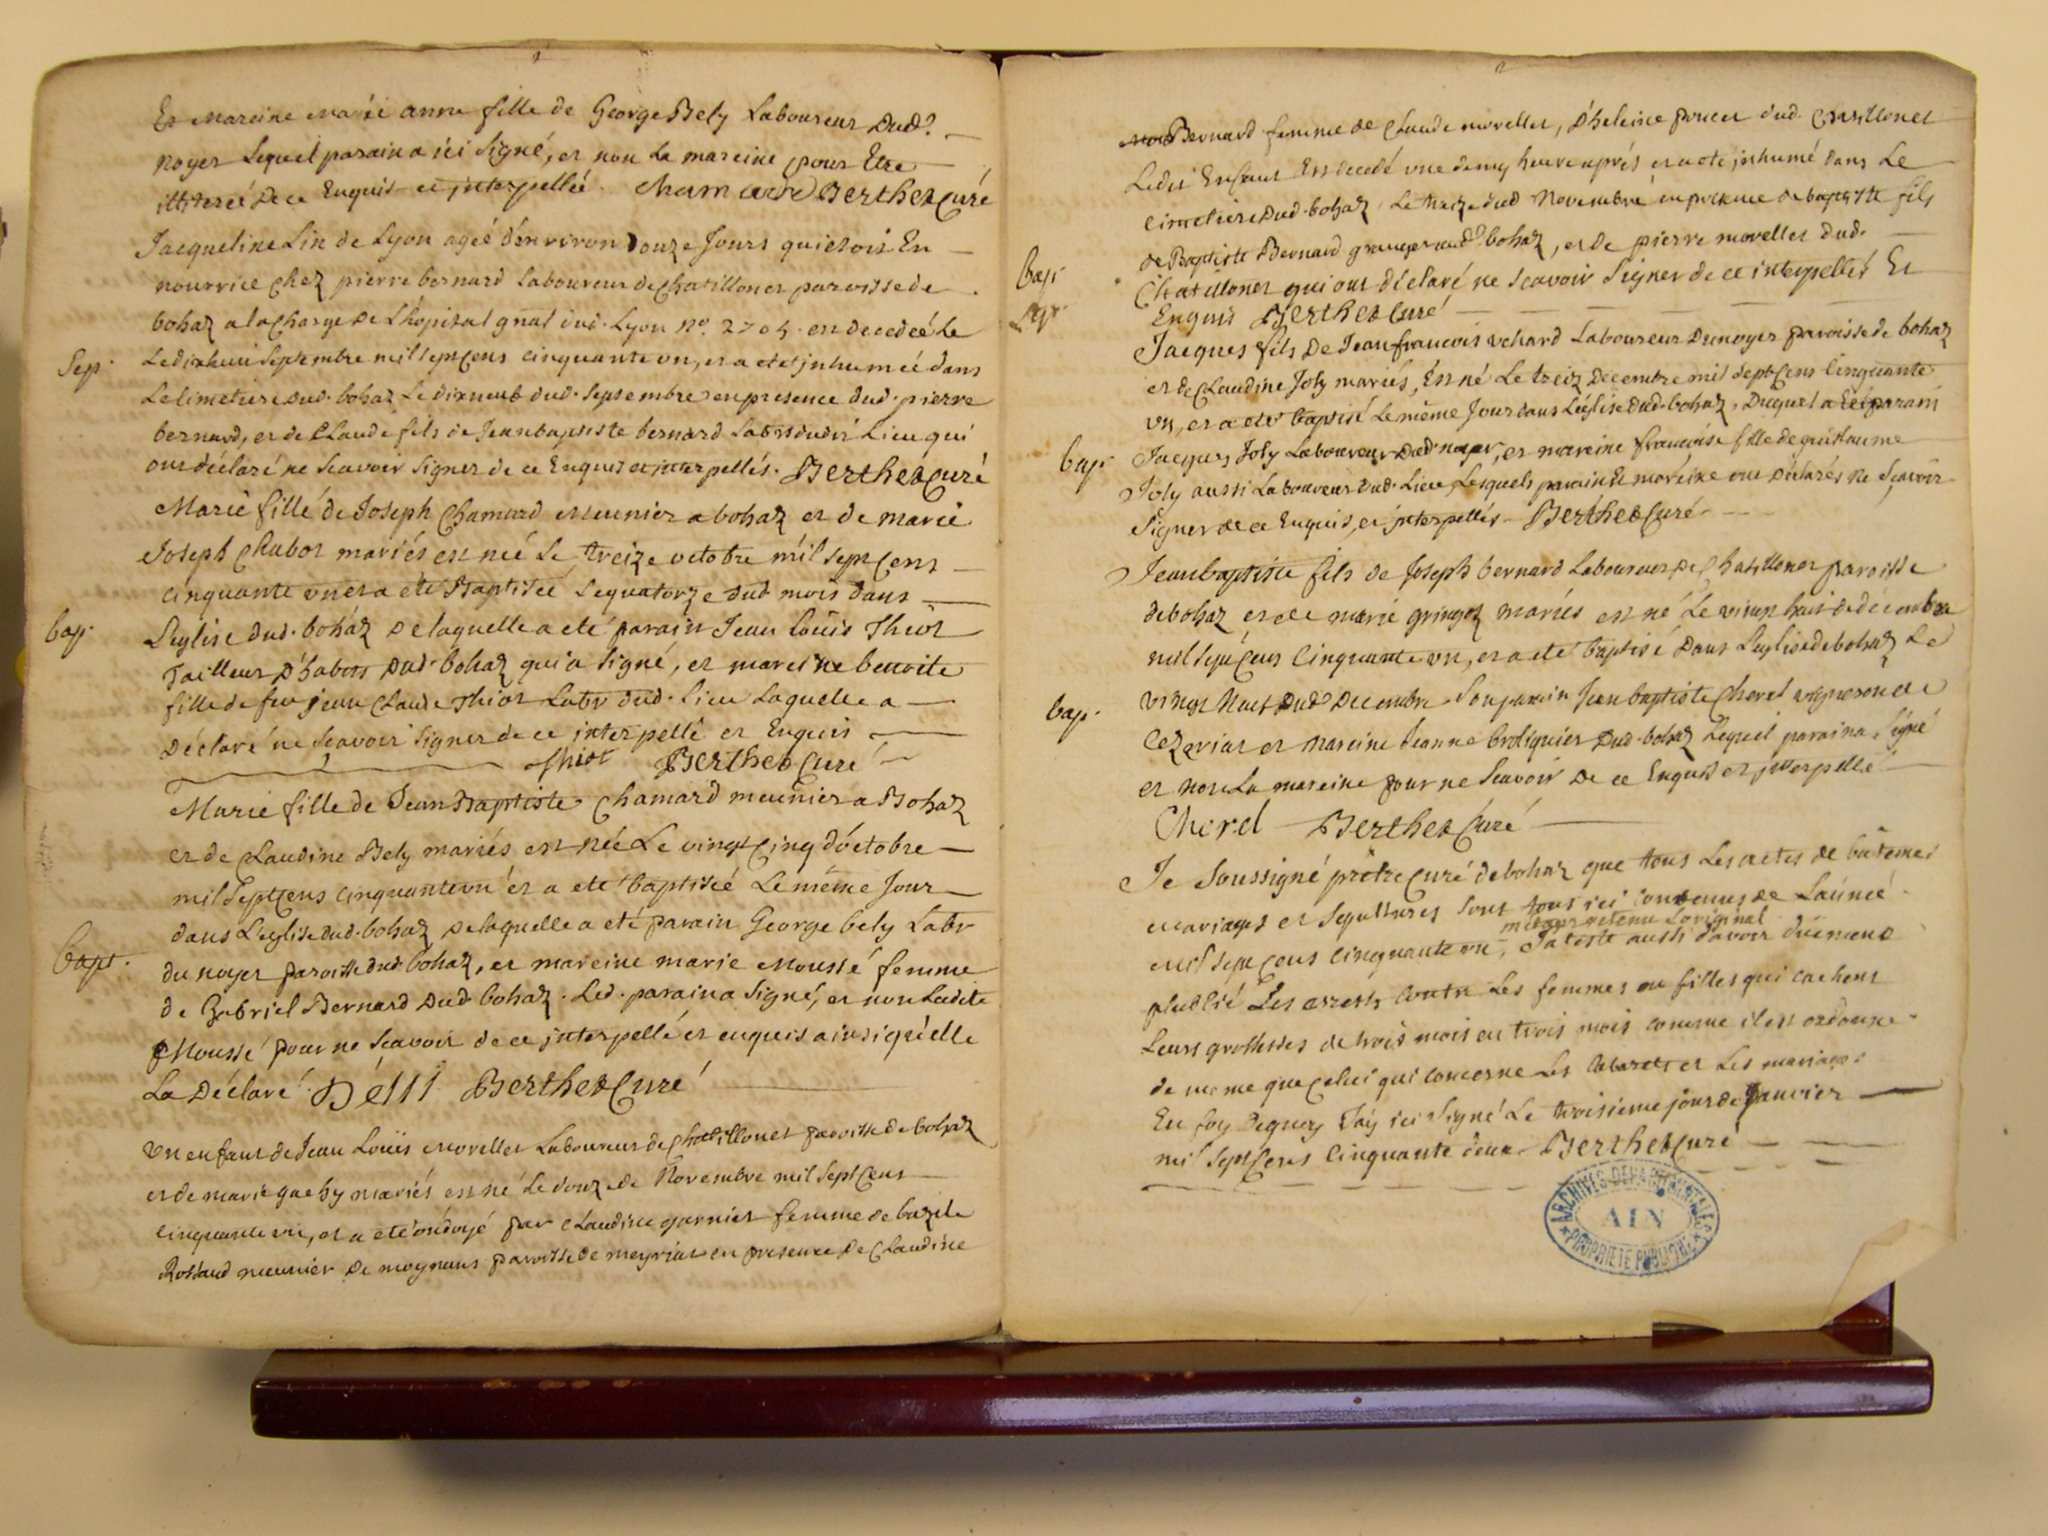 Et mareine marie anne fille de George Bely Laboureur Dud.
noyer Lequel parain a ici Signé, et non La mareine pour Etre
illiterée De ce Enquis et interpellée. chamard Berthet Curé
Jacqueline Lin de Lyon ageé d'environ Douze Jours qui etoit En
nourrice chez pierre bernard Laboureur de chatillonet paroisse de
bohaz a la Charge de L'hopital gnal dud. Lyon No. 2705 est decedeé Le
Sep.
Le dixhuit Septembre mil sept cens cinquante un, et a eté inhumeé dans
Le cimetiere dud. bohaz Le dixneuf dud. Septembre en presence dud. pierre
bernard, et de Claude fils de Jean baptiste bernard Labr dudit Lieu qui
ont déclaré ne Scavoir Signer de ce Enquis et interpellés. Berthet Curé
Marie fille de Joseph Chamard meunier a bohaz et de marie
Joseph Chabot mariés est neé Le treize octobre mil sept cens
cinquante un et a eté Baptiseé Le quatorze dud mois dans
bap.
L'eglise dud. bohaz de laquelle a eté parain Jean Louis Thiot
Tailleur D'habits dud. bohaz qui a Signé, et mareine benoite
fille de feu jean Claude Thiot Labr dud. Lieu Laquelle a
Déclaré ne Scavoir Signer de ce interpellé et Enquis
thiot Berthet Curé
Marie fille de Jean Baptiste Chamard meunier a Bohaz
et de Claudine Bely mariés est née Le vingt Cinq d'octobre
mil Sept Cens cinquante un et a eté baptiseé Le même Jour
dans L'eglise dud. bohaz de laquelle a eté parain George bely Labr
Bapt.
du noyer paroisse dud. bohaz, et mareine marie Moussé femme
de Gabriel Bernard dud. bohaz. Led. parain a Signé, et non Ladite
Moussé pour ne Scavoir de ce interpellé et enquis ainsi qu'elle
La Déclaré. Bélli Berthet Curé
Un enfant de Jean Louis morellet Laboureur de Chatillonet paroisse de bohaz
et de marie mariés est né Le douze de Novembre mil Sept Cens
cinquante un, et a eté ondoyé par Claudine garnier femme de bazile
Rossand meunier de moynans paroisse de meyriat en presence de Claudine
Bernard femme de Claude morellet, D'heleine poncet dud. Chatillonet
Ledit Enfant Est decedé une demy heure aprés et a eté inhumé dans Le
cimetiere Dud. bohaz Le treize dud Novembre en presence de baptiste fils
de Baptiste Bernard granger aud. bohaz, et de pierre morellet dud.
Bap.
Chatillonet qui ont déclaré ne Scavoir Signer de ce interpellés Et
Sep.
Enquis Berthet Curé
Jacques fils De Jean francois uchard Laboureur Dunoyer paroisse de bohaz
et de Claudine Joly mariés, Est né Le treize Decembre mil Sept Cens Cinquante
un, et a eté baptisé Le même Jour dans L'église Dud. bohaz, Duquel a Eté parain
bap.
Jacques Joly Laboureur Dud. noyer, et mareine francoise fille de guillaume
Joly aussi Laboureur dud. Lieu, Lesquels parain Et mareine ont déclarés ne Scavoir
Signer de ce Enquis, et interpellés Berthet Curé
Jean baptiste fils de Joseph bernard Laboureur De Chatillonet paroisse
de bohaz et de marie gringoz mariés est né Le vingt huit de decembre
mil Sept Cens Cinquante un, et a eté baptisé Dans L'eglise de bohaz Le
bap.
vingt Neuf Dud Decembre Son parain Jean baptiste Cherel vigneron de
Cezeriat et mareine Jeanne broliquier Dud. bohaz Lequel parain a Signé
et non La mareine pour ne Scavoir De ce Enquis et interpellé
Cherel Berthet Curé
Je Soussigné prêtre Curé de bohaz que tous Les actes de batemes
mariages et Sepultures Sont tous ici contenus de L'anneé
retenu L'original
mil Sept Cens Cinquante un, J'ateste aussi davoir duement
publié Les arrests contre Les femmes ou filles qui cachent
Leurs grossesses de trois mois en trois mois comme il est ordonné
de meme que Celui qui concerne Les Cabarets et Les mariages
En foy dequoy J'ay ici Signé Le troisieme jour de Janvier
mil Sept Cens Cinquante deux. Berthet Curé
ARCHIVES DEPARTEMENTALES
AIN
PROPRIETE PUBLIQUE